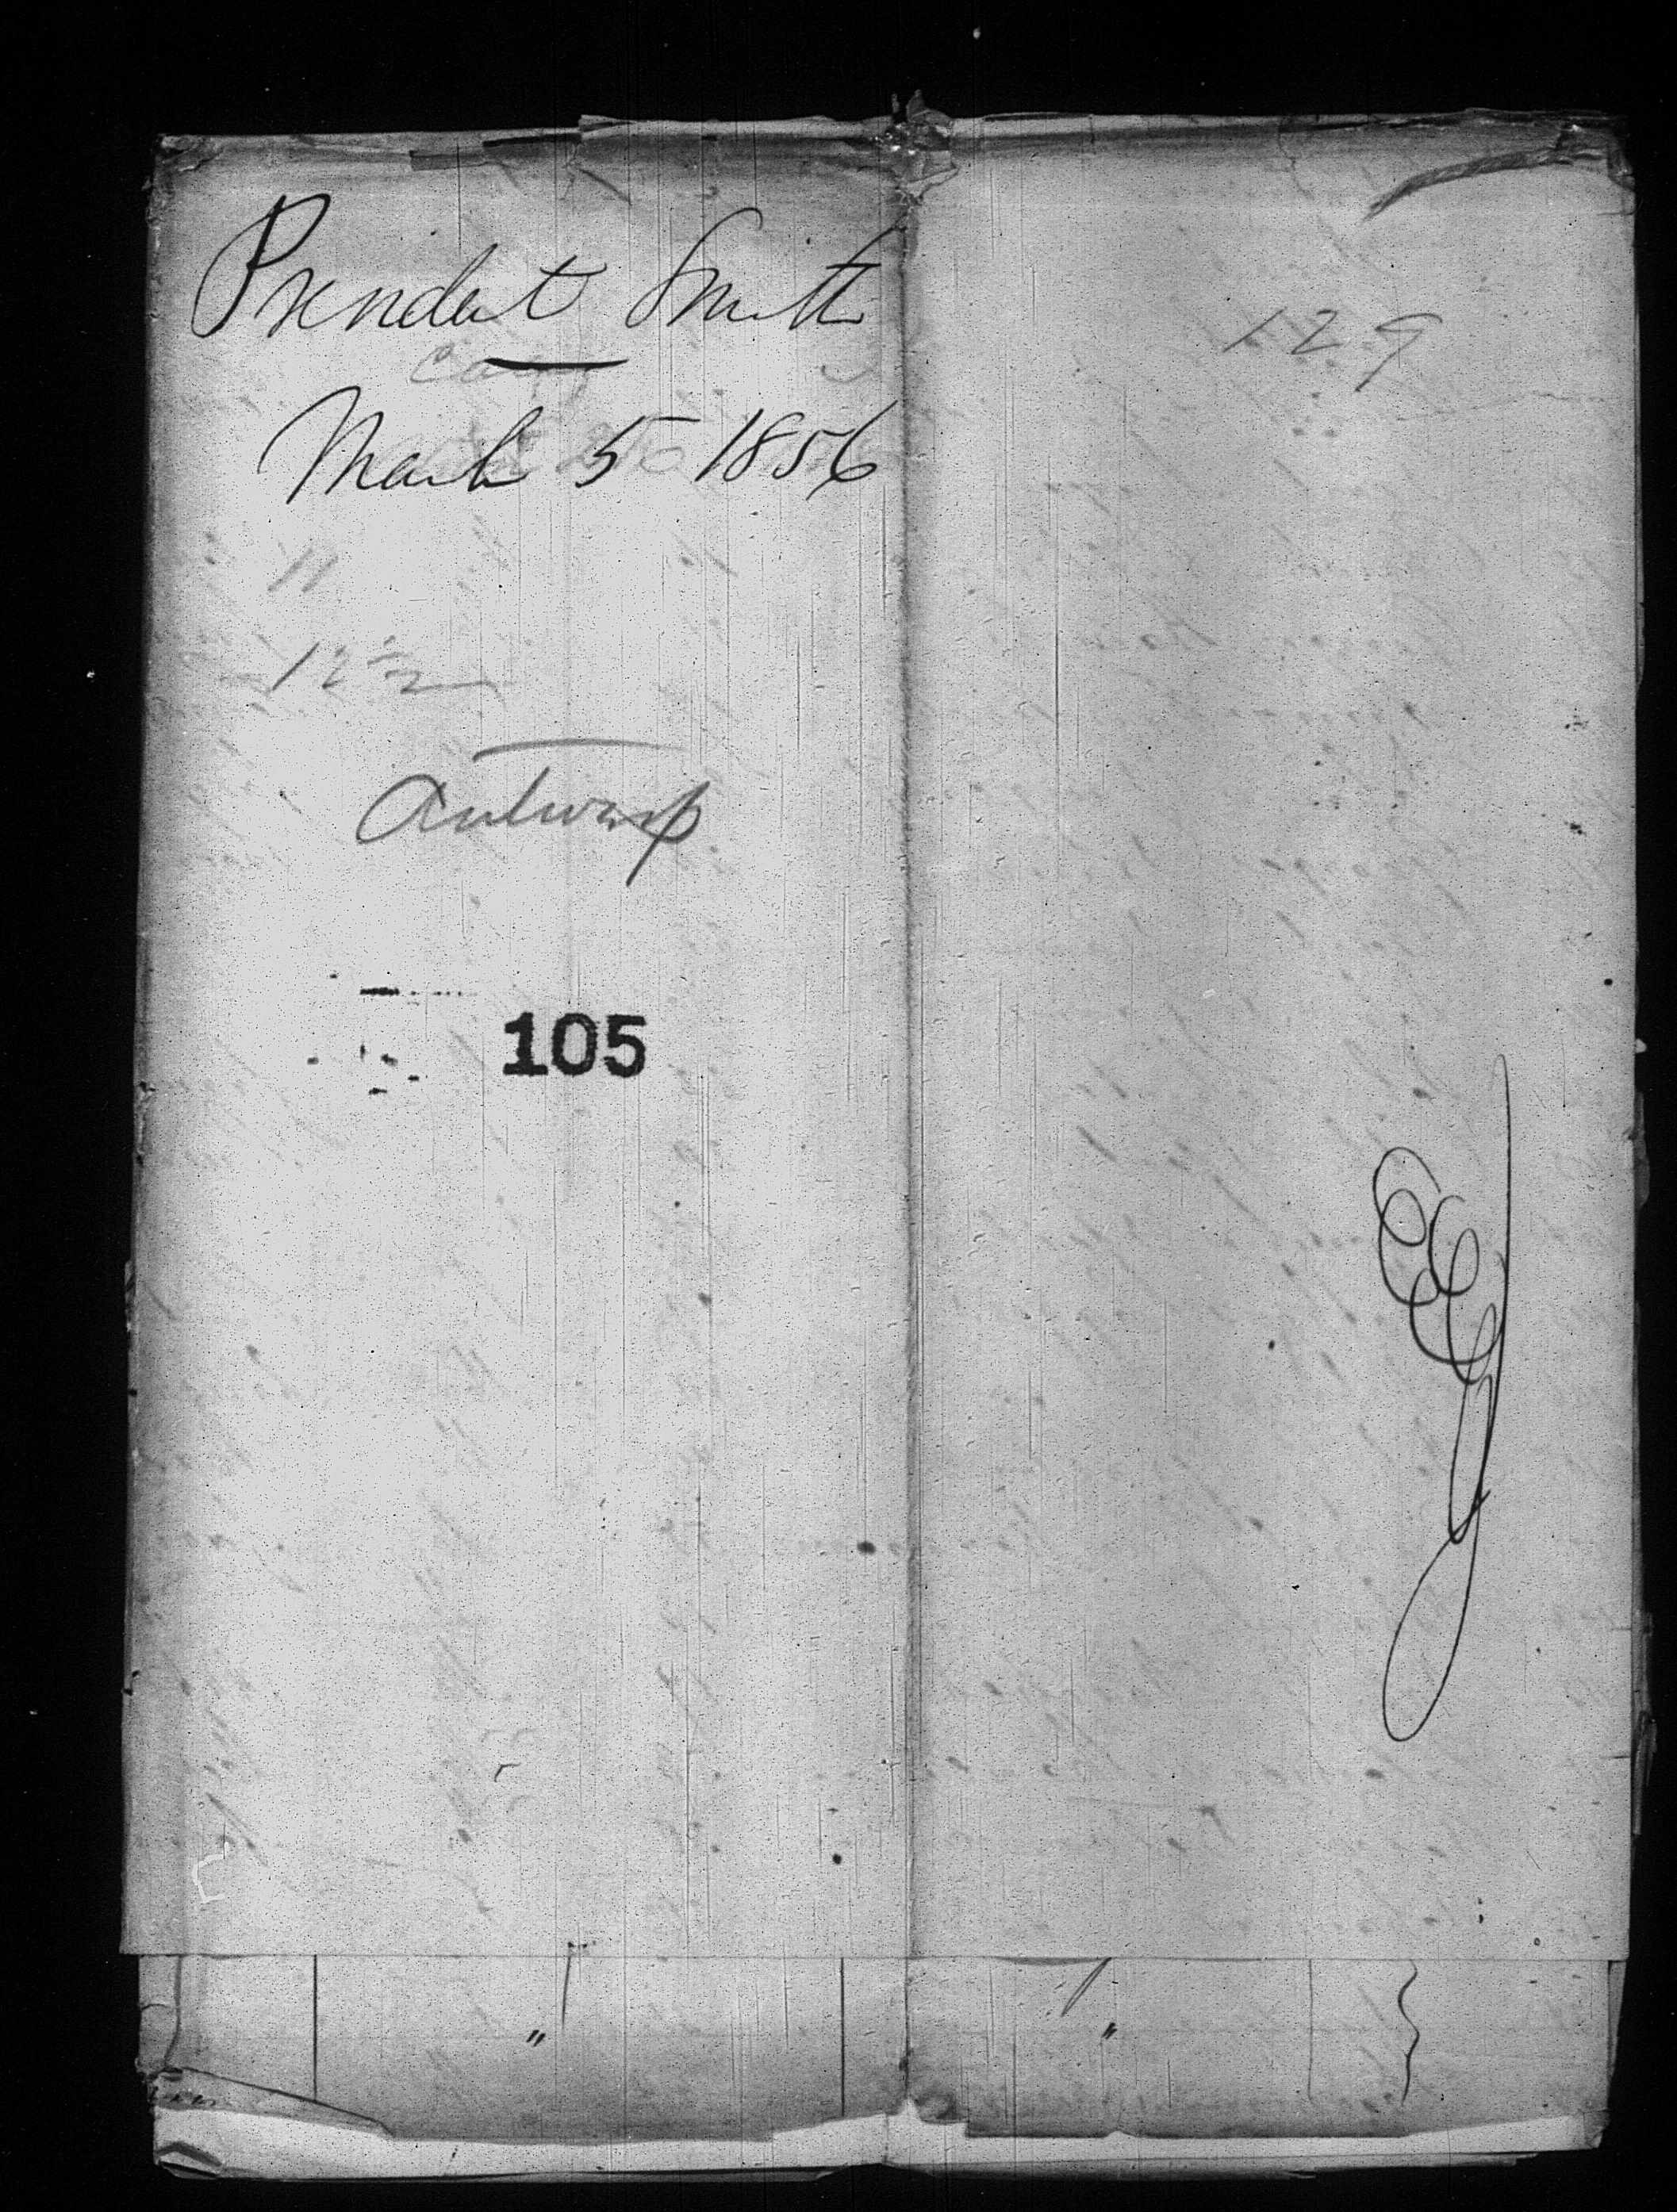 President Smith
March 5 1856
11
12 1/2
Antwerp
105
129